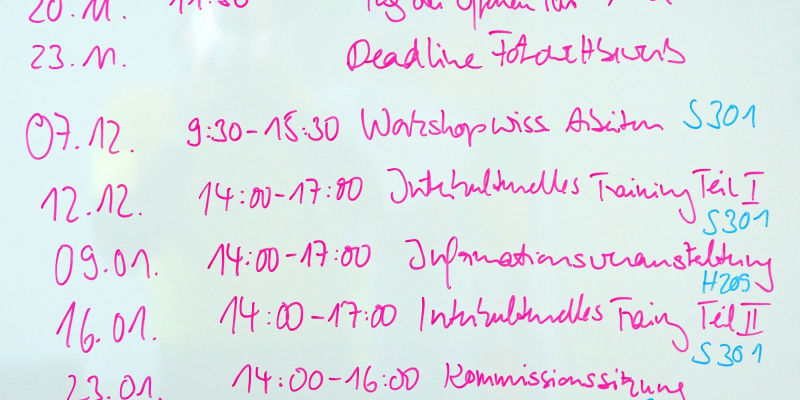 20.11. 11:30 Tag der Offenen Tür
23.11. Deadline Fotowettbewerb
07.12. 9:30-15:30 Workshop wiss Arbeiten S301
12.12. 14:00-17:00 Interkulturelles Training Teil I
S301
09.01. 14:00-17:00 Informationsveranstaltung
H205
16.01. 14:00-17:00 Interkulturelles Training Teil II
S301
23.01. 14:00-16:00 Kommissionssitzung